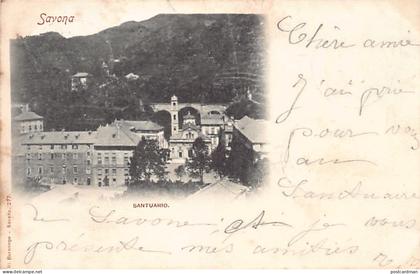 Savona
Chère amie
J'ai prié
pour vous
au
Sanctuaire
SANTUARIO.
de Savona. Et je vous
présente mes amities